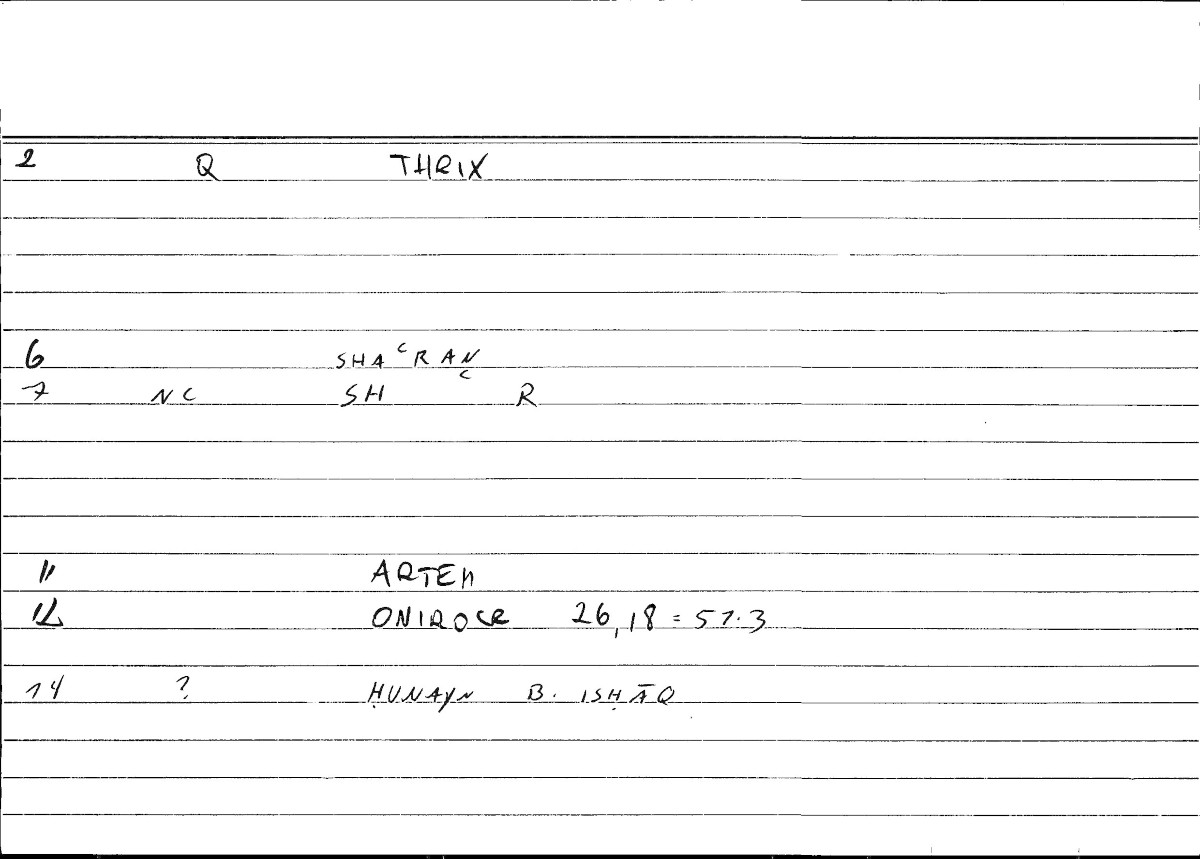 2 Q THRIX
6 SHAʿRAN
7 NC SHʿR
11 ARTEM
12 ONIROCR 26,18 = 57.3
14 ? ḤUNAYN B. ISḤĀQ